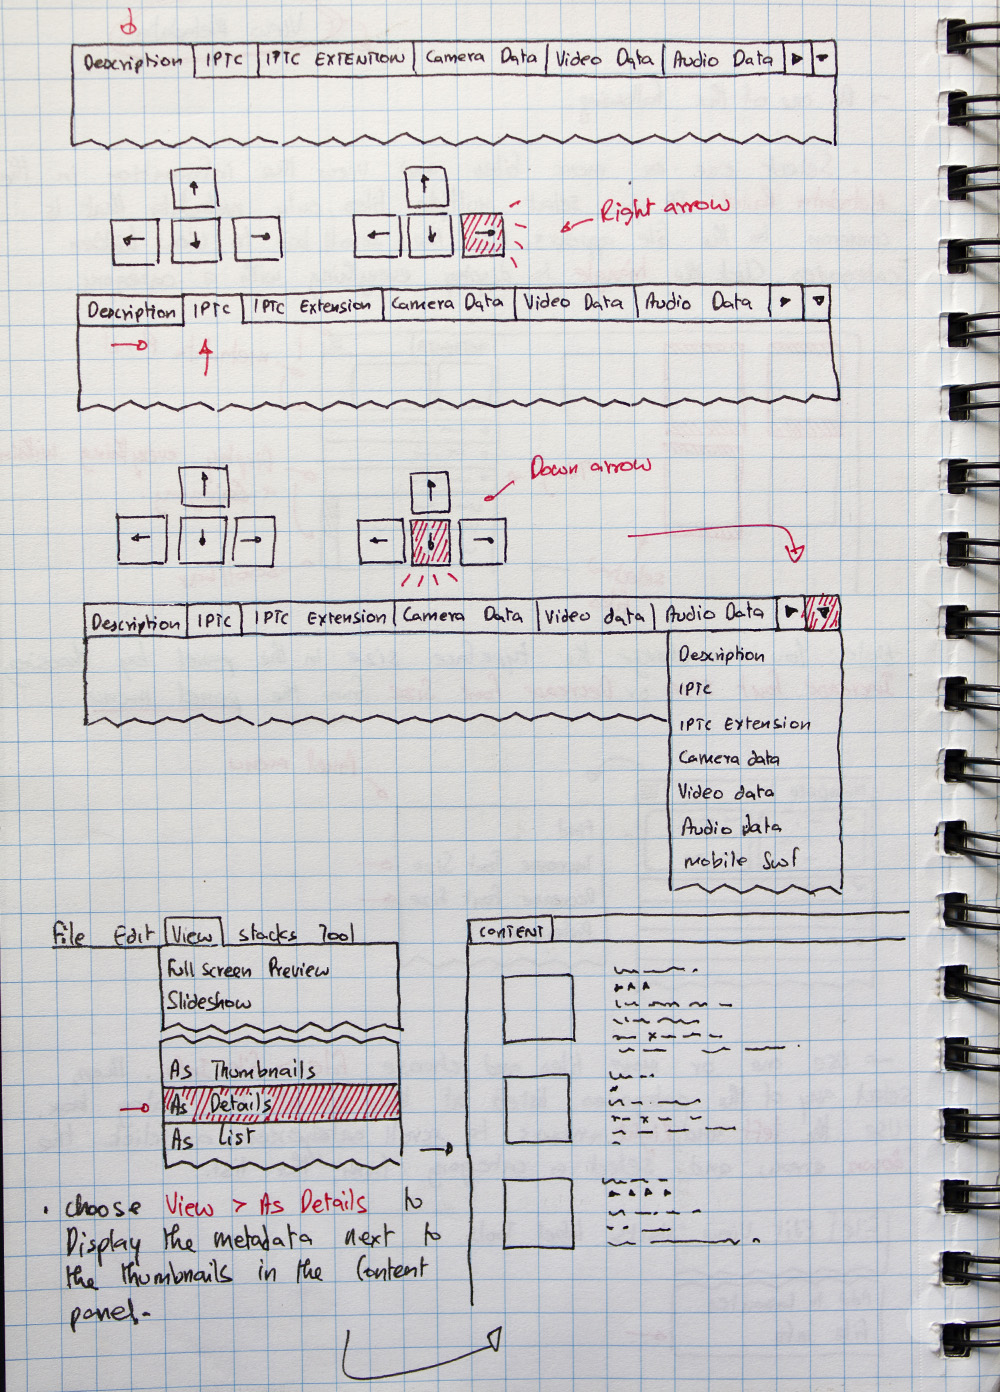 Description IPTC IPTC EXTENTION Camera Data Video Data Audio Data
Right arrow
Description IPTC IPTC Extension Camera Data Video Data Audio Data
Down arrow
Description IPTC IPTC Extension Camera Data Video data Audio Data
Description
IPTC
IPTC Extension
Camera data
Video data
Audio data
mobile Swf
File Edit View Stacks Tool
Full screen Preview
Slideshow
As Thumbnails
As Details
As List
CONTENT
• choose View > As Details to
Display the metadata next to
the thumbnails in the Content
panel.